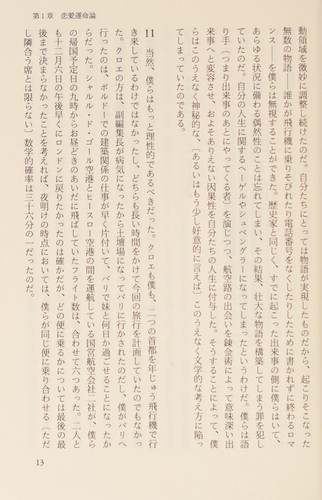 第1章 恋愛運命論
動領域を微妙に調整し続けたのだ。自分たちにとっては物語が実現したものだから、起こりそこなった
無数の物語――誰かが飛行機に乗りそびれたり電話番号をなくしたりしたために書かれずに終わるロマ
ンス――を僕らは無視することができた。歴史家と同じく、すでに起こった出来事の側に僕らはいて、
あらゆる状況に備わる偶然性のことは忘れてしまい、その結果、壮大な物語を構築してしまう罪を犯し
ていたのだ。自分の人生に関するヘーゲルやシュペングラーになってしまっていたというわけだ。僕らは語
り手（つまり出来事のあとにやってくる者）を演じつつ、航空路の出会いを錬金術によって意味深い出
来事へと変容させ、およそありえない因果性を自分たちの人生に付与した。そうすることで、僕
らはこのうえなく神秘的な、（あるいはもう少し好意的に言えば）このうえなく文学的な考え方に陥っ
てしまっていたのである。
11 当然、僕らはもっと理性的であるべきだった。クロエも僕も、二つの首都を年じゅう飛行機で行
き来しているわけではなかったし、どちらも長い時間をかけて今回の旅行を計画していたのでもなかっ
た。クロエの方は、副編集長が病気になったから土壇場になってパリに行かされたのだし、僕がパリへ
行ったのは、ボルドーでの建築関係の仕事が早く片付いて、パリで妹と何日か過ごせることになったか
らだった。シャルル・ド・ゴール空港とヒースロー空港の間を運航している国営航空会社二社が、僕ら
の帰国予定日の九時からお昼どきのあいだに飛ばしていたフライト数は、合わせて六つあった。二人と
も十二月六日の午後早くにロンドンに戻りたかったのは確かだが、どの便に乗るかについては最後の最
後まで決まらなかったことを考えれば、夜明けの時点においては、僕らが同じ便に乗り合わせる（ただ
し隣合う席とは限らない）数学的確率は三十六分の一だったのだ。
13